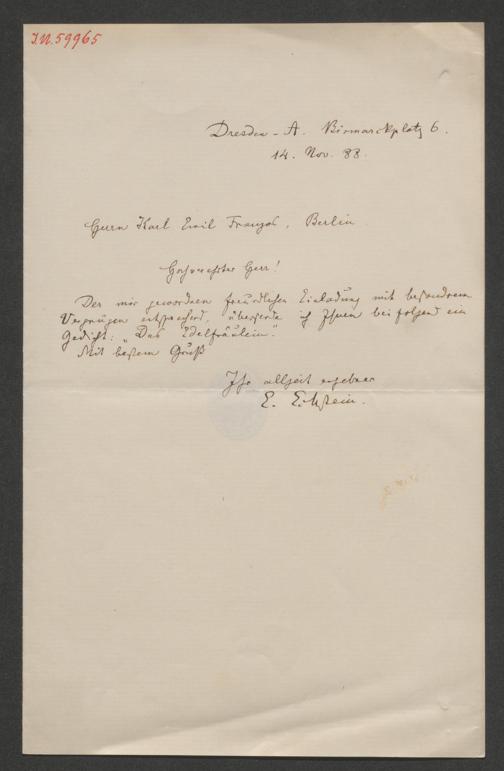 I.N. 59965
Dresden-A. Bismarckplatz 6.
14. Nov. 88.
Herrn Karl Emil Franzos, Berlin
Hochgeehrter Herr!
Der mir gewordenen freundlichen Einladung mit besonderem
Vergnügen entsprechend, übersende ich Ihnen beifolgend ein
Gedicht: „Das Edelfräulein".
Mit bestem Gruß
Ihr allzeit ergebener
E. Eckstein.